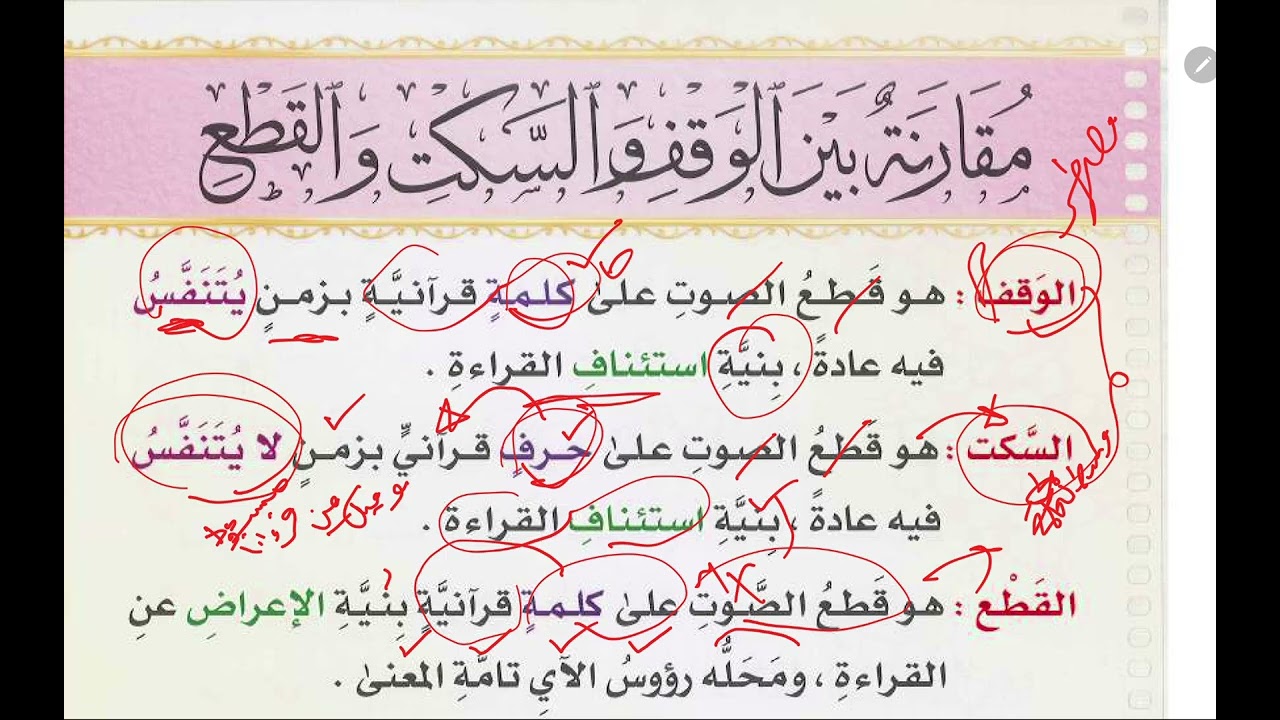 مُقَارَنَةٌ بَيْنَ ٱلْوَقْفِ وَٱلسَّكْتِ وَٱلْقَطْعِ
الوَقف : هـو قَـطـعُ الصـوتِ علىٰ كلـمـةٍ قـرآنيَّـةٍ بـزمـنٍ يُتَنَفَّسُ
فيه عادةً ، بِنيَّةِ استئنافِ القراءةِ .
السَّكت : هـو قَطـعُ الصـوتِ علىٰ حـرفٍ قـرآنيٍّ بزمـنٍ لا يُتَنَفَّسُ
فيه عادةً ، بِنيَّةِ استئنافِ القراءة .
القَطْع : هو قَطعُ الصَّوتِ علىٰ كلمةٍ قرآنيَّةٍ بِنيَّةِ الإعراضِ عنِ
القراءةِ ، ومَحَلُّه رؤوسُ الآيِ تامَّةِ المعنىٰ .